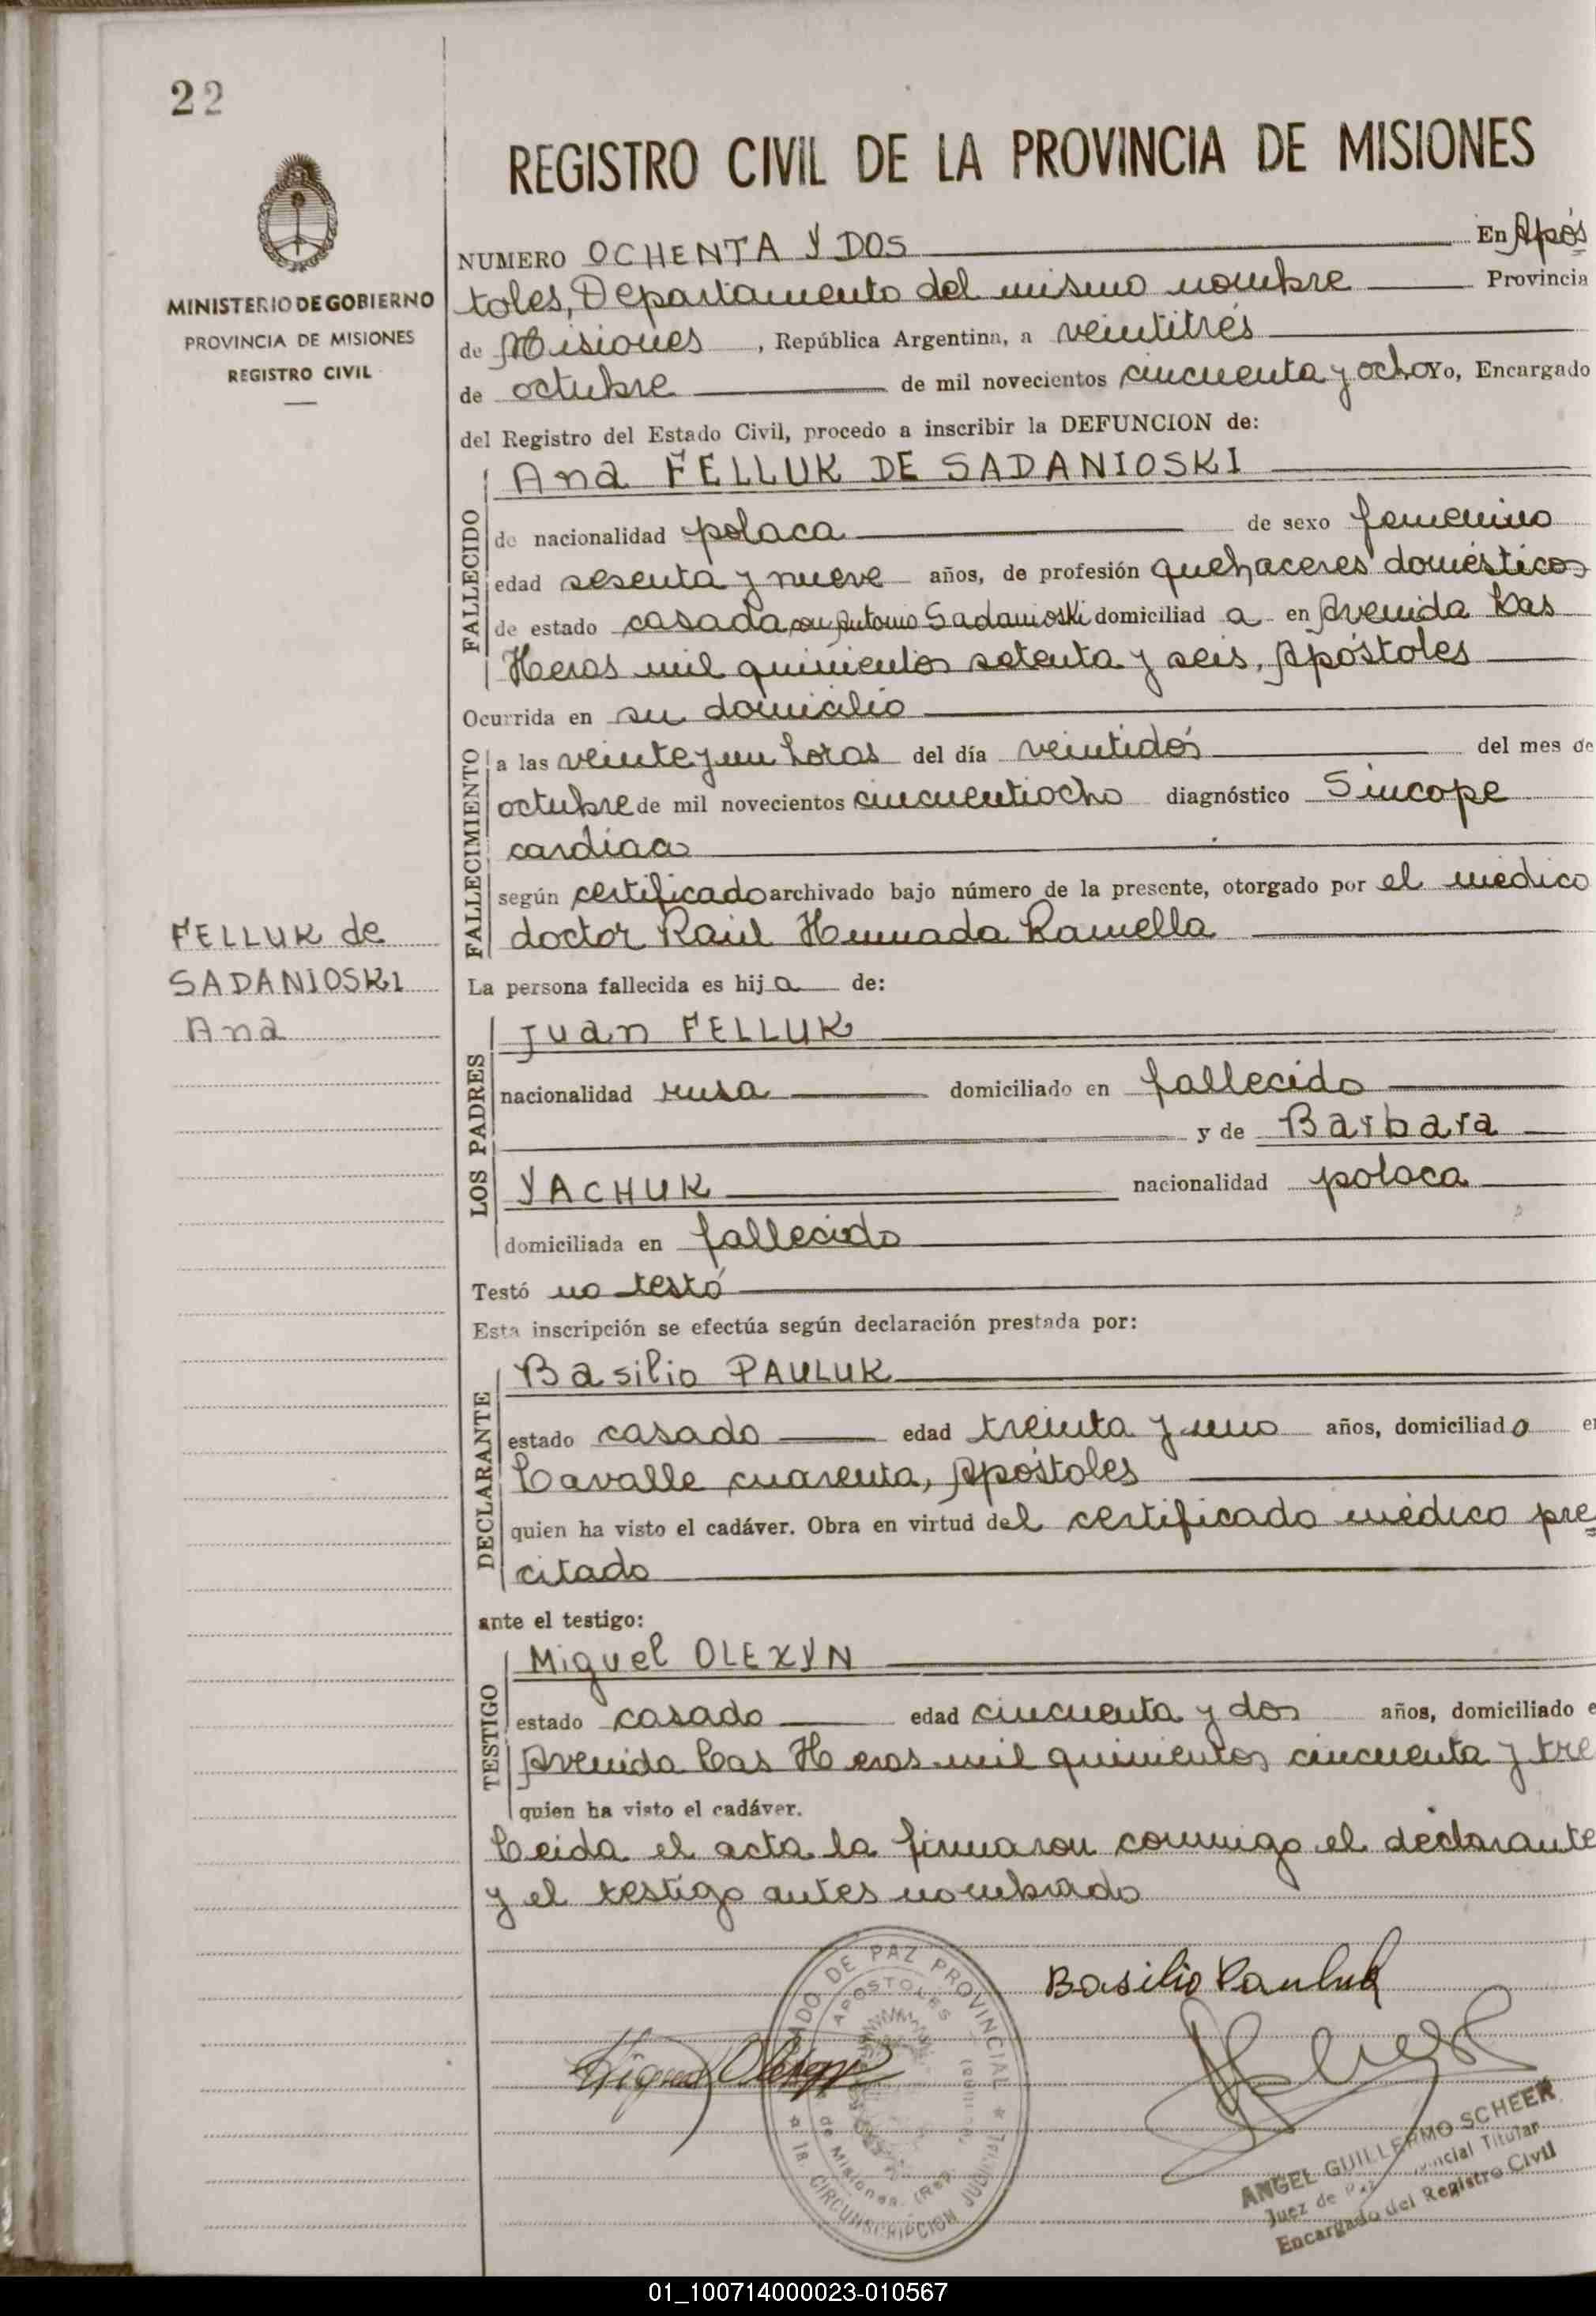 22
REGISTRO CIVIL DE LA PROVINCIA DE MISIONES
MINISTERIO DE GOBIERNO
PROVINCIA DE MISIONES
REGISTRO CIVIL
NUMERO OCHENTA Y DOS En Após
toles, Departamento del mismo nombre Provincia
de Misiones, República Argentina, a veintitrés
de octubre de mil novecientos cincuenta y ocho Yo, Encargado
del Registro del Estado Civil, procedo a inscribir la DEFUNCION de:
FALLECIDO
Ana FELLUK DE SADANIOSKI
de nacionalidad polaca de sexo femenino
edad sesenta y nueve años, de profesión quehaceres domésticos
de estado casada con Antonio Sadanioski domiciliad a en Avenida Las
Heras mil quinientos setenta y seis, Apóstoles
Ocurrida en su domicilio
FALLECIMIENTO
a las veinte y un horas del día veintidós del mes de
octubre de mil novecientos cincuentiocho diagnóstico Síncope
cardíaco
según certificado archivado bajo número de la presente, otorgado por el médico
doctor Raúl Ramella
FELLUK de
SADANIOSKI
Ana
La persona fallecida es hij a de:
LOS PADRES
Juan FELLUK
nacionalidad rusa domiciliado en fallecido
y de Barbara
YACHUK nacionalidad polaca
domiciliada en fallecido
Testó no testó
Esta inscripción se efectúa según declaración prestada por:
DECLARANTE
Basilio PAULUK
estado casado edad treinta y uno años, domiciliado e
Lavalle cuarenta, Apóstoles
quien ha visto el cadáver. Obra en virtud del certificado médico pre
citado
ante el testigo:
TESTIGO
Miguel OLEXYN
estado casado edad cincuenta y dos años, domiciliado e
Avenida Las Heras mil quinientos cincuenta y tre
quien ha visto el cadáver.
Leida el acta la firmaron conmigo el declarante
y el testigo antes nombrado
Basilio Pauluk
Miguel Olexyn
ADO DE PAZ PROVINCIAL
APOSTOLES
de Misiones (Rep.
1a. CIRCUNSCRIPCION JUDICIAL
ANGEL GUILLERMO SCHEER
Juez de Paz Titular
Encargado del Registro Civil
01_100714000023-010567